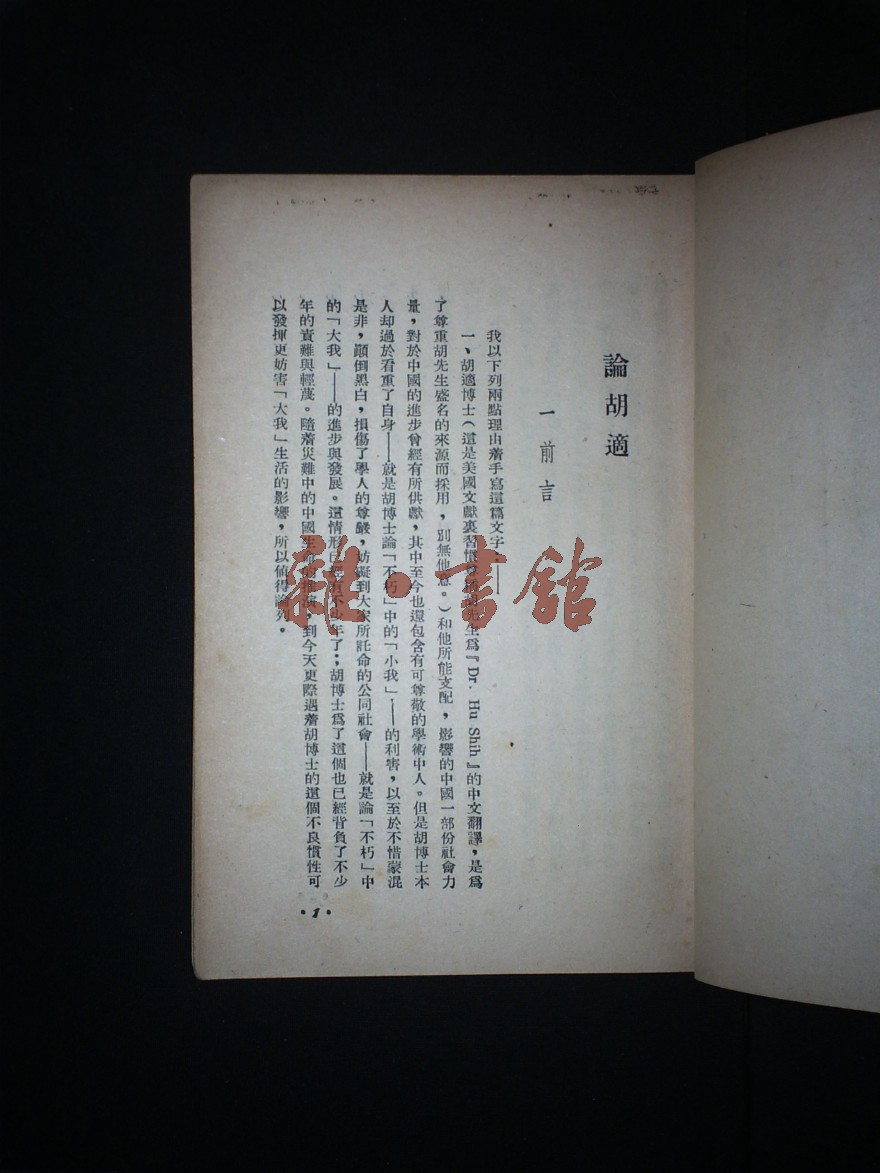 論胡適
一 前言
我以下列兩點理由着手寫這篇文字：——
一、胡適博士（這是美國文獻裏習慣 先生爲『Dr. Hu Shih』的中文翻譯，是爲
了尊重胡先生盛名的來源而採用，別無他意。）和他所能支配，影響的中國一部份社會力
量，對於中國的進步曾經有所供獻，其中至今也還包含有可尊敬的學術中人。但是胡博士本
人却過於看重了自身——就是胡博士論「不朽」中的「小我」——的利害，以至於不惜蒙混
是非，顚倒黑白，損傷了學人的尊嚴，妨礙到大家所託命的公同社會——就是論「不朽」中
的「大我」——的進步與發展。這情形已經有不少年了；胡博士爲了這個也已經背負了不少
年的責難與輕蔑。隨着災難中的中國生命的推演，到今天更際遇着胡博士的這個不良慣性可
以發揮更妨害「大我」生活的影響，所以值得論列。
•1•
雜·書館